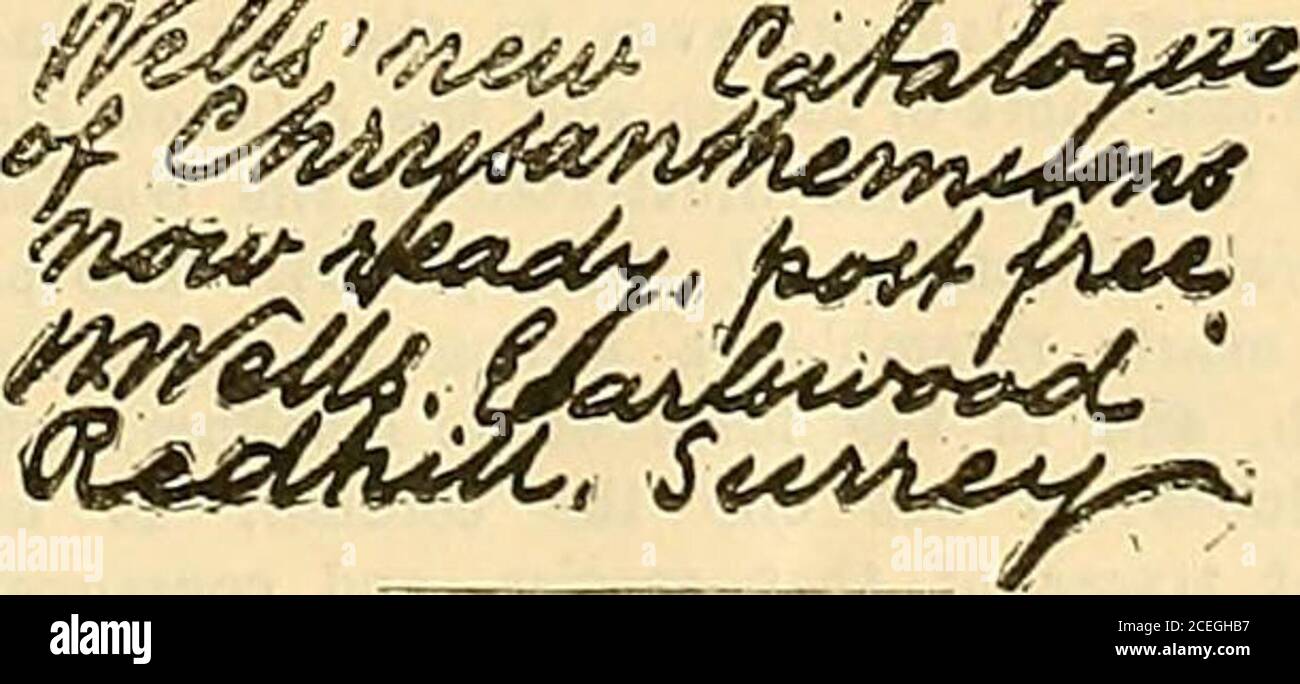 Wells' new Catalogue
of Chrysanthemums
now ready, post free.
W Wells. Earlswood
Redhill, Surrey
alamy
a
a
alamy
a
alamy
Image ID: 2CEGHB7
www.alamy.com